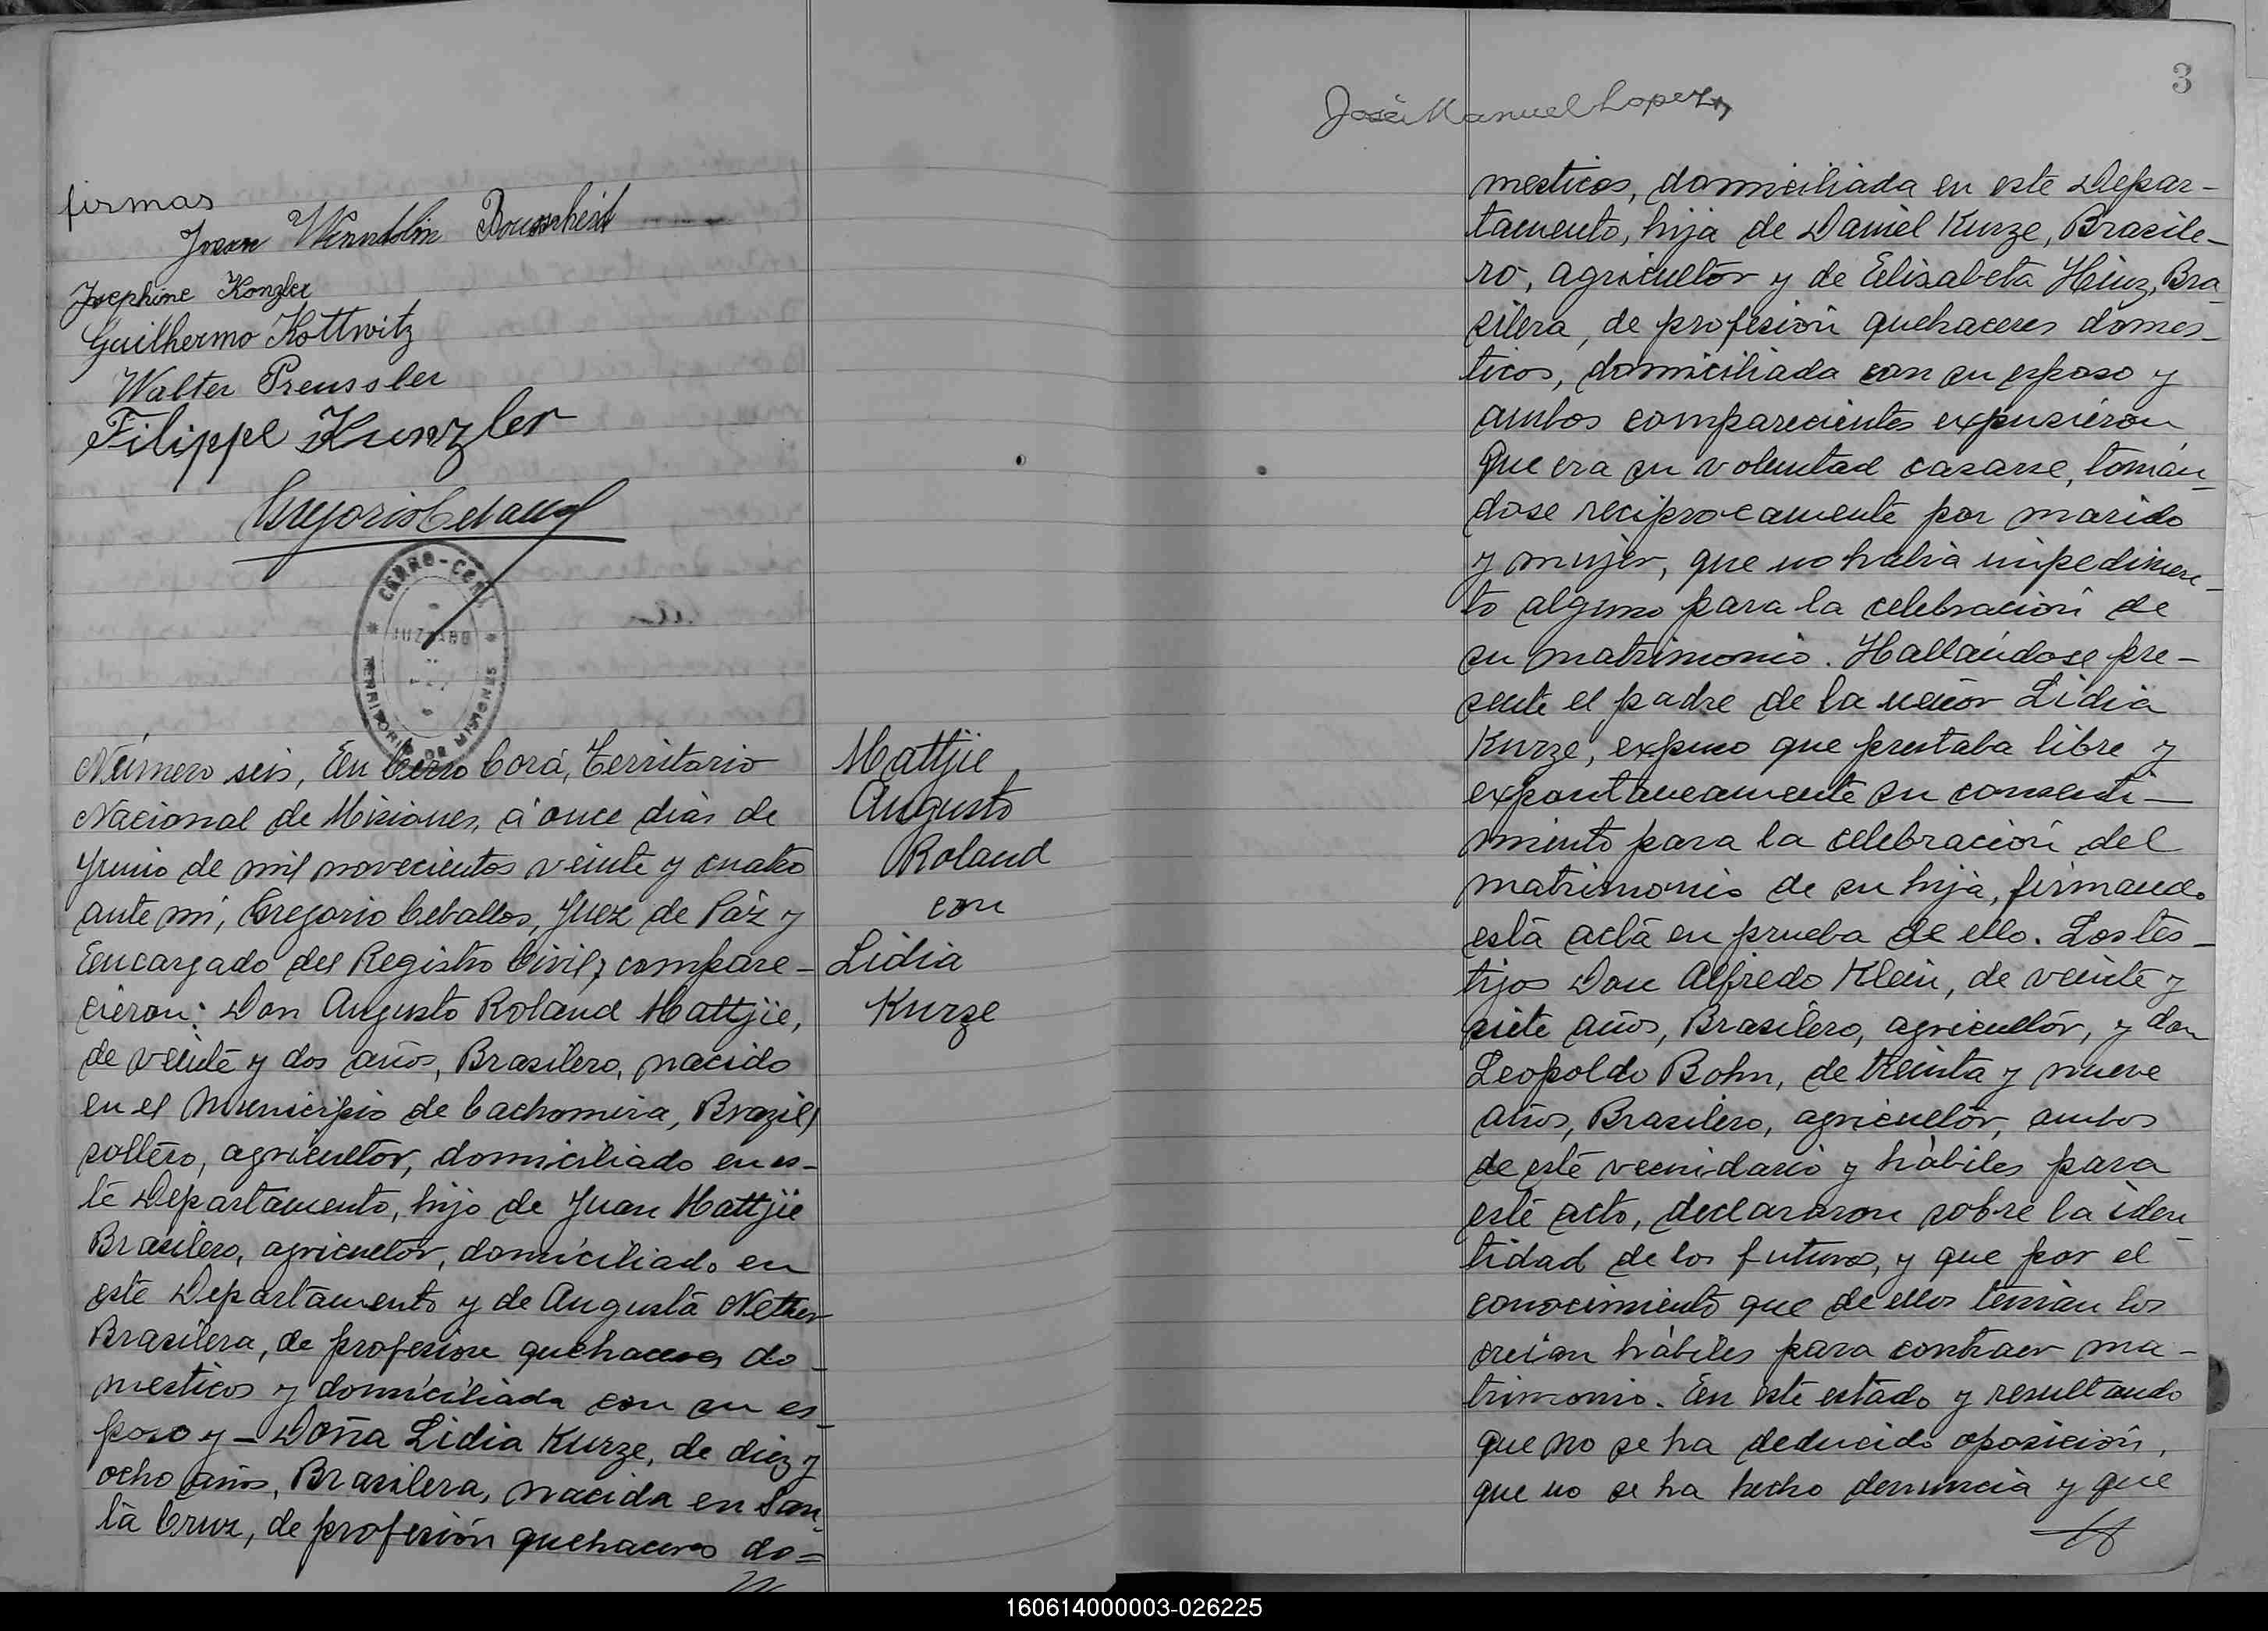 firmas
Juan
Josephine Konzler
Guilhermo Kottwitz
Walter Preussler
Filippe Kunzler
Gregorio Ceballos
CERRO-CORÁ
JUZGADO
TERRITORIO DE MISIONES
Número seis, En Cerro Corá, Territorio
Nacional de Misiones, á once días de
Junio de mil novecientos veinte y cuatro
ante mi, Gregorio Ceballos, Juez de Páz y
Encargado del Registro Civil, compare-
cieron: Don Augusto Roland Mattjie,
de veinte y dos años, Brasilero, nacido
en el Municipio de Cachomira, Brazil,
soltero, agricultor, domiciliado en es-
te Departamento, hijo de Juan Mattjie
Brasilero, agricultor, domiciliado en
este Departamento y de Augusta Nether
Brasilera, de profesion quehaceres do-
mesticos y domiciliada con su es-
poso y - Doña Lidia Kurze, de diez y
ocho años, Brasilera, nacida en San-
ta Cruz, de profesión quehaceres do=
Mattjie
Augusto
Roland
con
Lidia
Kurze
3
José Manuel Lopez
mesticos, domiciliada en este Depar-
tamento, hija de Daniel Kurze, Brasile-
ro, agricultor y de Elisabeta Hinz, Bra-
silera, de profesión quehaceres domes-
ticos, domiciliada con su esposo y
ambos comparecientes expusieron
que era su voluntad casarse, tomán-
dose reciprocamente por marido
y mujer, que no habia impedimen-
to alguno para la celebración de
su matrimonio. Hallándose pre-
sente el padre de la menor Lidia
Kurze, expuso que prestaba libre y
expontaneamente su consenti-
miento para la celebración del
matrimonio de su hija, firmando
está acta en prueba de ello. Los tes-
tigos Don Alfredo Klein, de veinte y
siete años, Brasilero, agricultor, y don
Leopoldo Bohn, de treinta y nueve
años, Brasilero, agricultor, ambos
de este vecindario y hábiles para
este acto, declararon sobre la iden-
tidad de los futuros, y que por el
conocimiento que de ellos tenian los
creian hábiles para contraer ma-
trimonio. En este estado y resultando
que no se ha deducido oposición,
que no se ha hecho denuncia y que
160614000003-026225